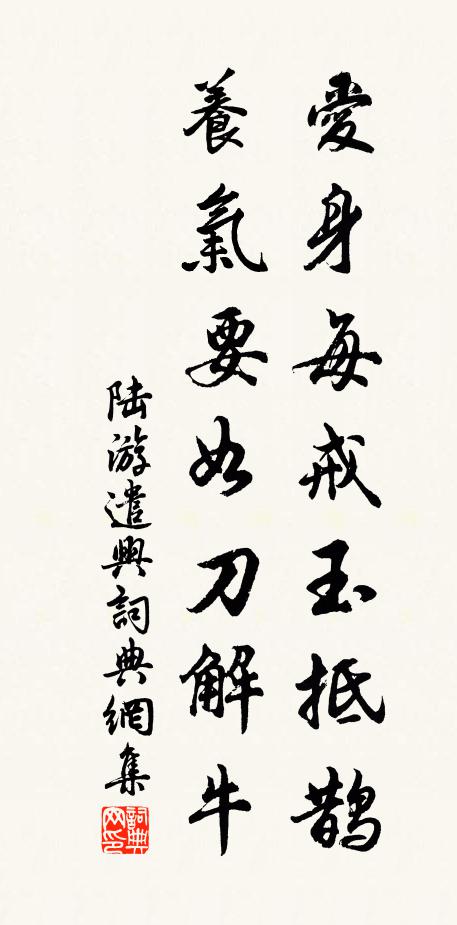 愛身每戒玉抵鹊
養氣要如刀解牛
陆游遣興詞典網集
詞典网印